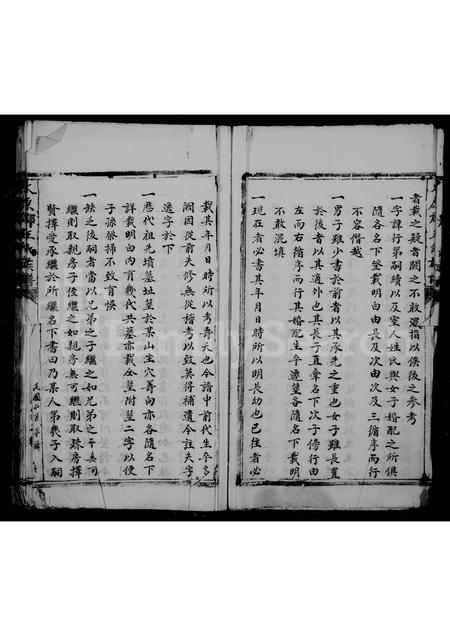 者載之疑者闕之不敢濫指以俟後之參考
一字諱行第嗣續以及室人姓氏與女子婚配之所俱
隨各名下登載明白由長及次由次及三循序而行
不容僭越
一男子雖少書於前者以其承先之重也女子雖長置
於後者以其適外也其長子直彙名下次子傍行由
左而右循序而行其婚配生卒遷塟各隨名下載明
不敢混填
一現在者必書其年月日時所以明長幼也已往者必
載其年月日時所以考壽夭也今譜中前代生卒多
闕因從前失修無從稽考以致莫得補遺今註失字
逸字於下
一歷代祖先墳墓址塟於某山坐穴㫖向亦各隨名下
詳載明白内有幾代共墓亦載仝塟附塟二字以便
子孫祭掃不致有悞
一缺乏後嗣者當以兄弟之子繼之如兄弟之子無可
繼則取親房子侄繼之如親房無可繼則取疎房擇
賢擇愛承繼於所繼名下書曰乃某人第幾子入嗣